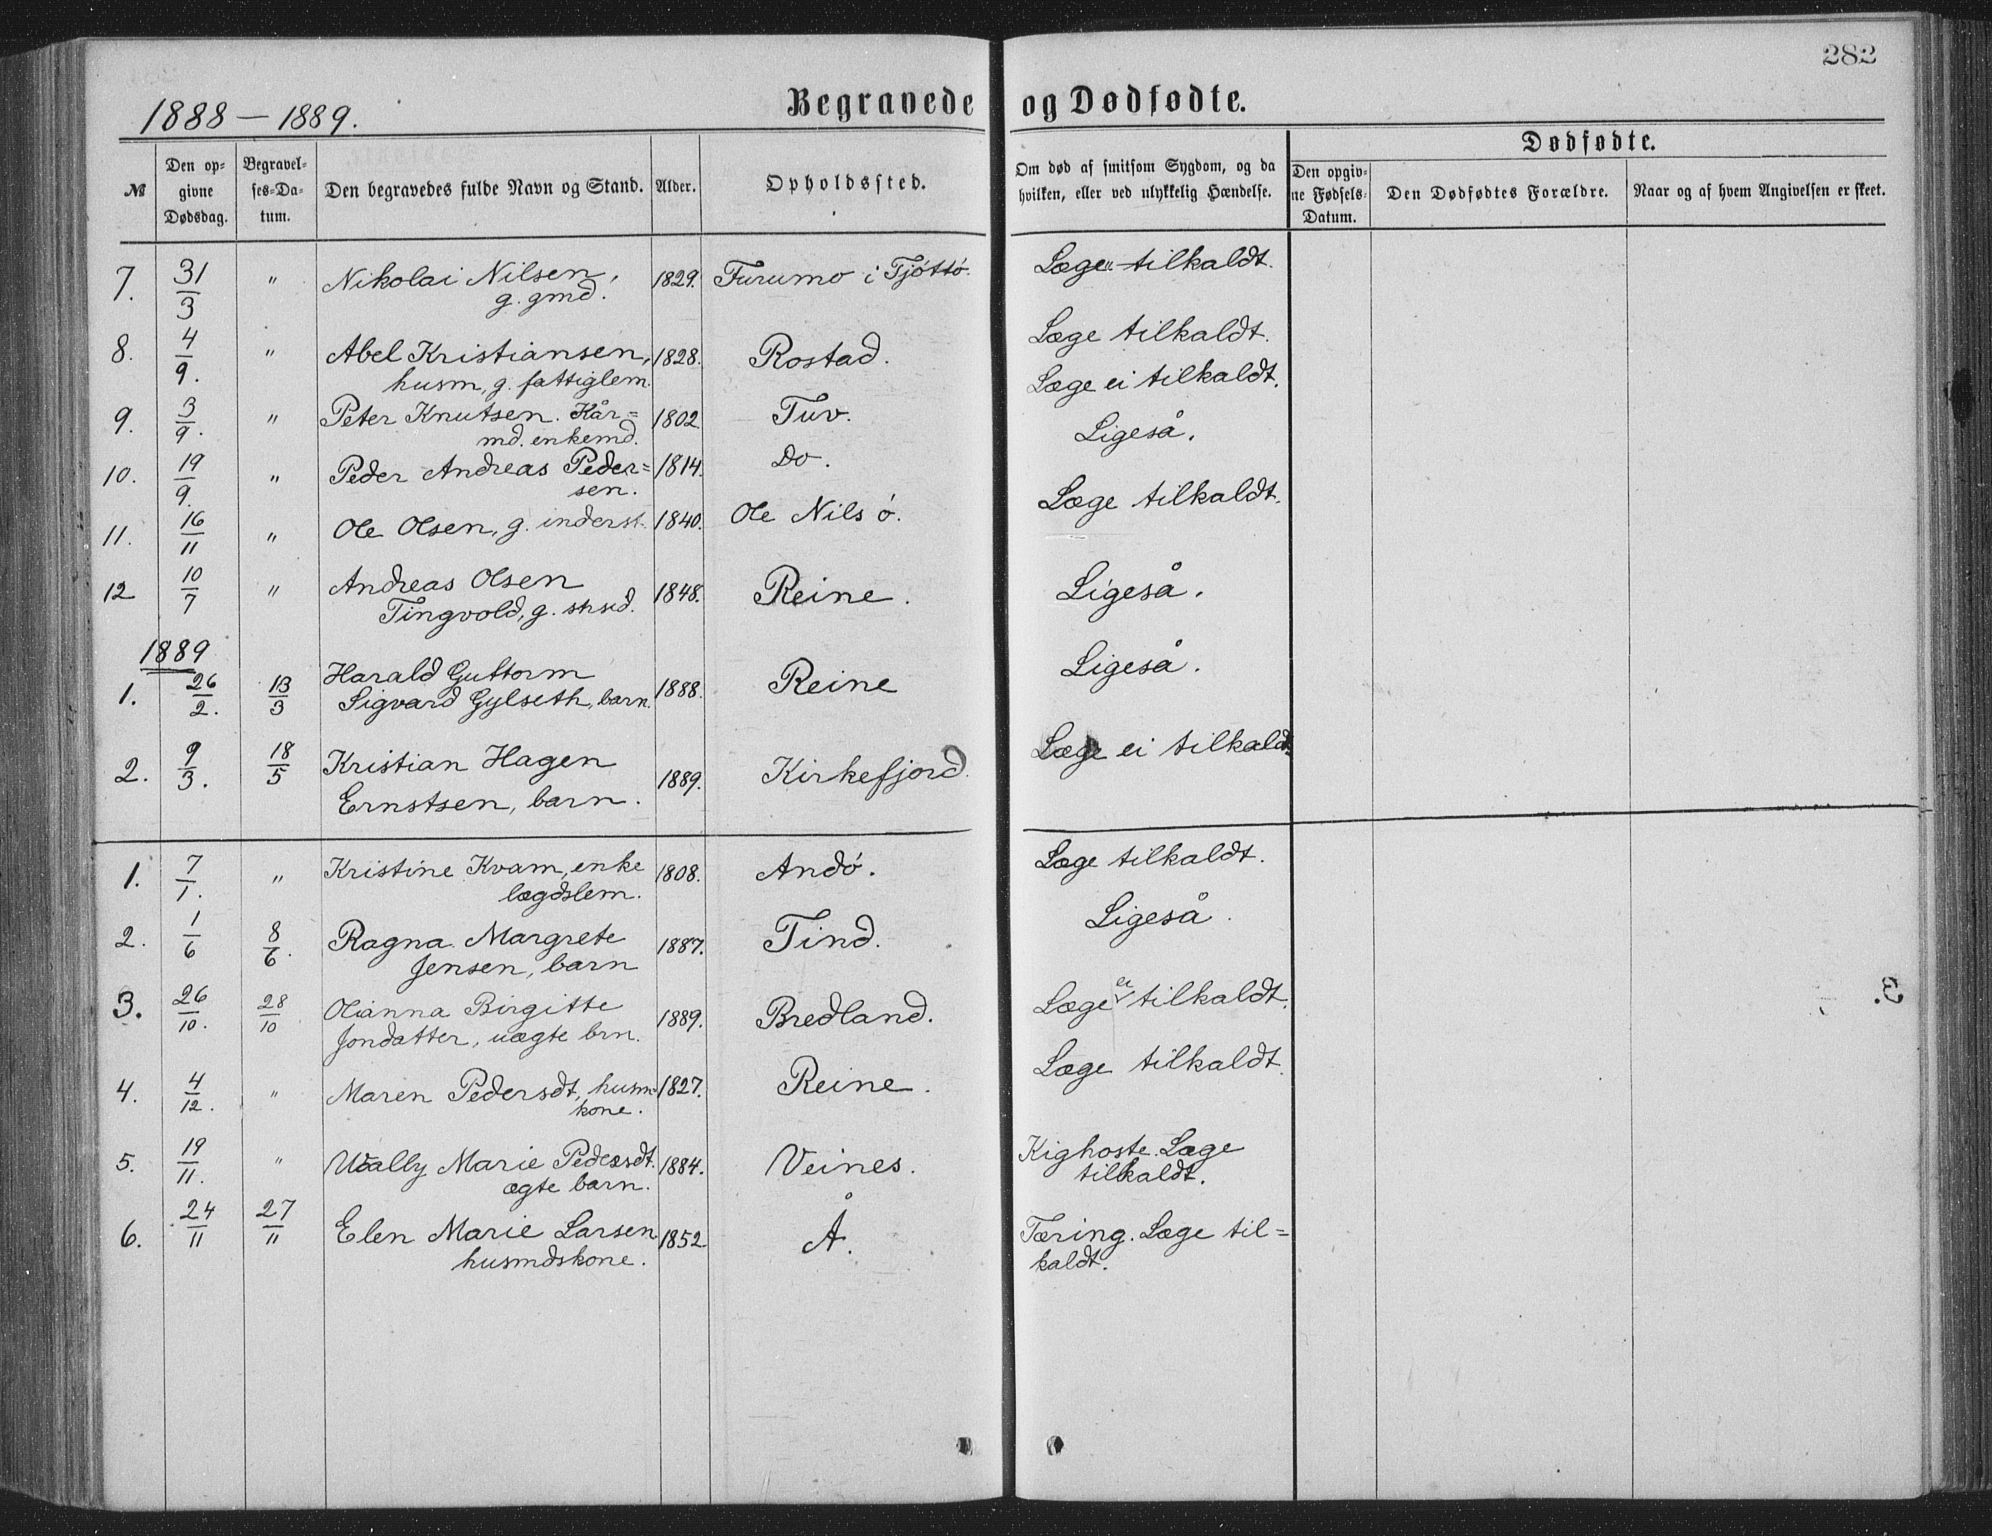 282
1888 – 1889.
Begravede og Dødfødte.
№
Den opgivne Dødsdag.
Begravelses-Datum.
Den begravedes fulde Navn og Stand.
Alder.
Opholdssted.
Om død af smitsom Sygdom, og da hvilken, eller ved ulykkelig Hændelse.
Dødfødte.
Den opgivne Fødsels-Datum.
Den Dødfødtes Forældre.
Naar og af hvem Angivelsen er skeet.
7. 31/3 " Nikolai Nilsen, 1829. Furumo i Tjøttø. Læge tilkaldt.
g. gmd.
8. 4/9. " Abel Kristiansen, 1828. Rostad. Læge tilkaldt.
husm, g. fattiglem. Læge ei tilkaldt.
9. 3/9. " Peter Knutsen. Kår= 1802 Tuv. Ligeså.
md. enkemd.
10. 19/9. " Peder Andreas Peder= 1814. Do. Læge tilkaldt.
sen.
11. 16/11 " Ole Olsen, g. inderst. 1840. Ole Nilsø.
12 10/7 " Andreas Olsen 1848. Reine. Ligeså.
Tingvold, g.
1889
1. 26/2. 13/3 Harald Guttorm 1888. Reine Ligeså.
Sigvard Gylseth, barn.
2. 9/3. 18/5 Kristian Hagen 1889. Kirkefjord. Læge ei tilkaldt
Ernstsen, barn.
1. 7/1. " Kristine Kvam, enke 1808. Andø. Læge tilkaldt.
lægdslem.
2. 1/6 8/6. Ragna Margrete 1887. Tind. Ligeså.
Jensen, barn
3. 26/10. 28/10 Olianna Birgitte 1889. Bredland. Læge ei tilkaldt.
Jondatter, uægte brn.
4. 4/12. " Maren Pedersdt, husm= 1827. Reine. Læge tilkaldt.
kone.
5. 19/11. " Wally Marie Pedersdt. 1884. Veines. Kighoste. Læge
ægte barn. tilkaldt.
6. 24/11 27/11 Elen Marie Larsen 1852. Å. Tæring. Læge til=
husmdskone. kaldt.
3.